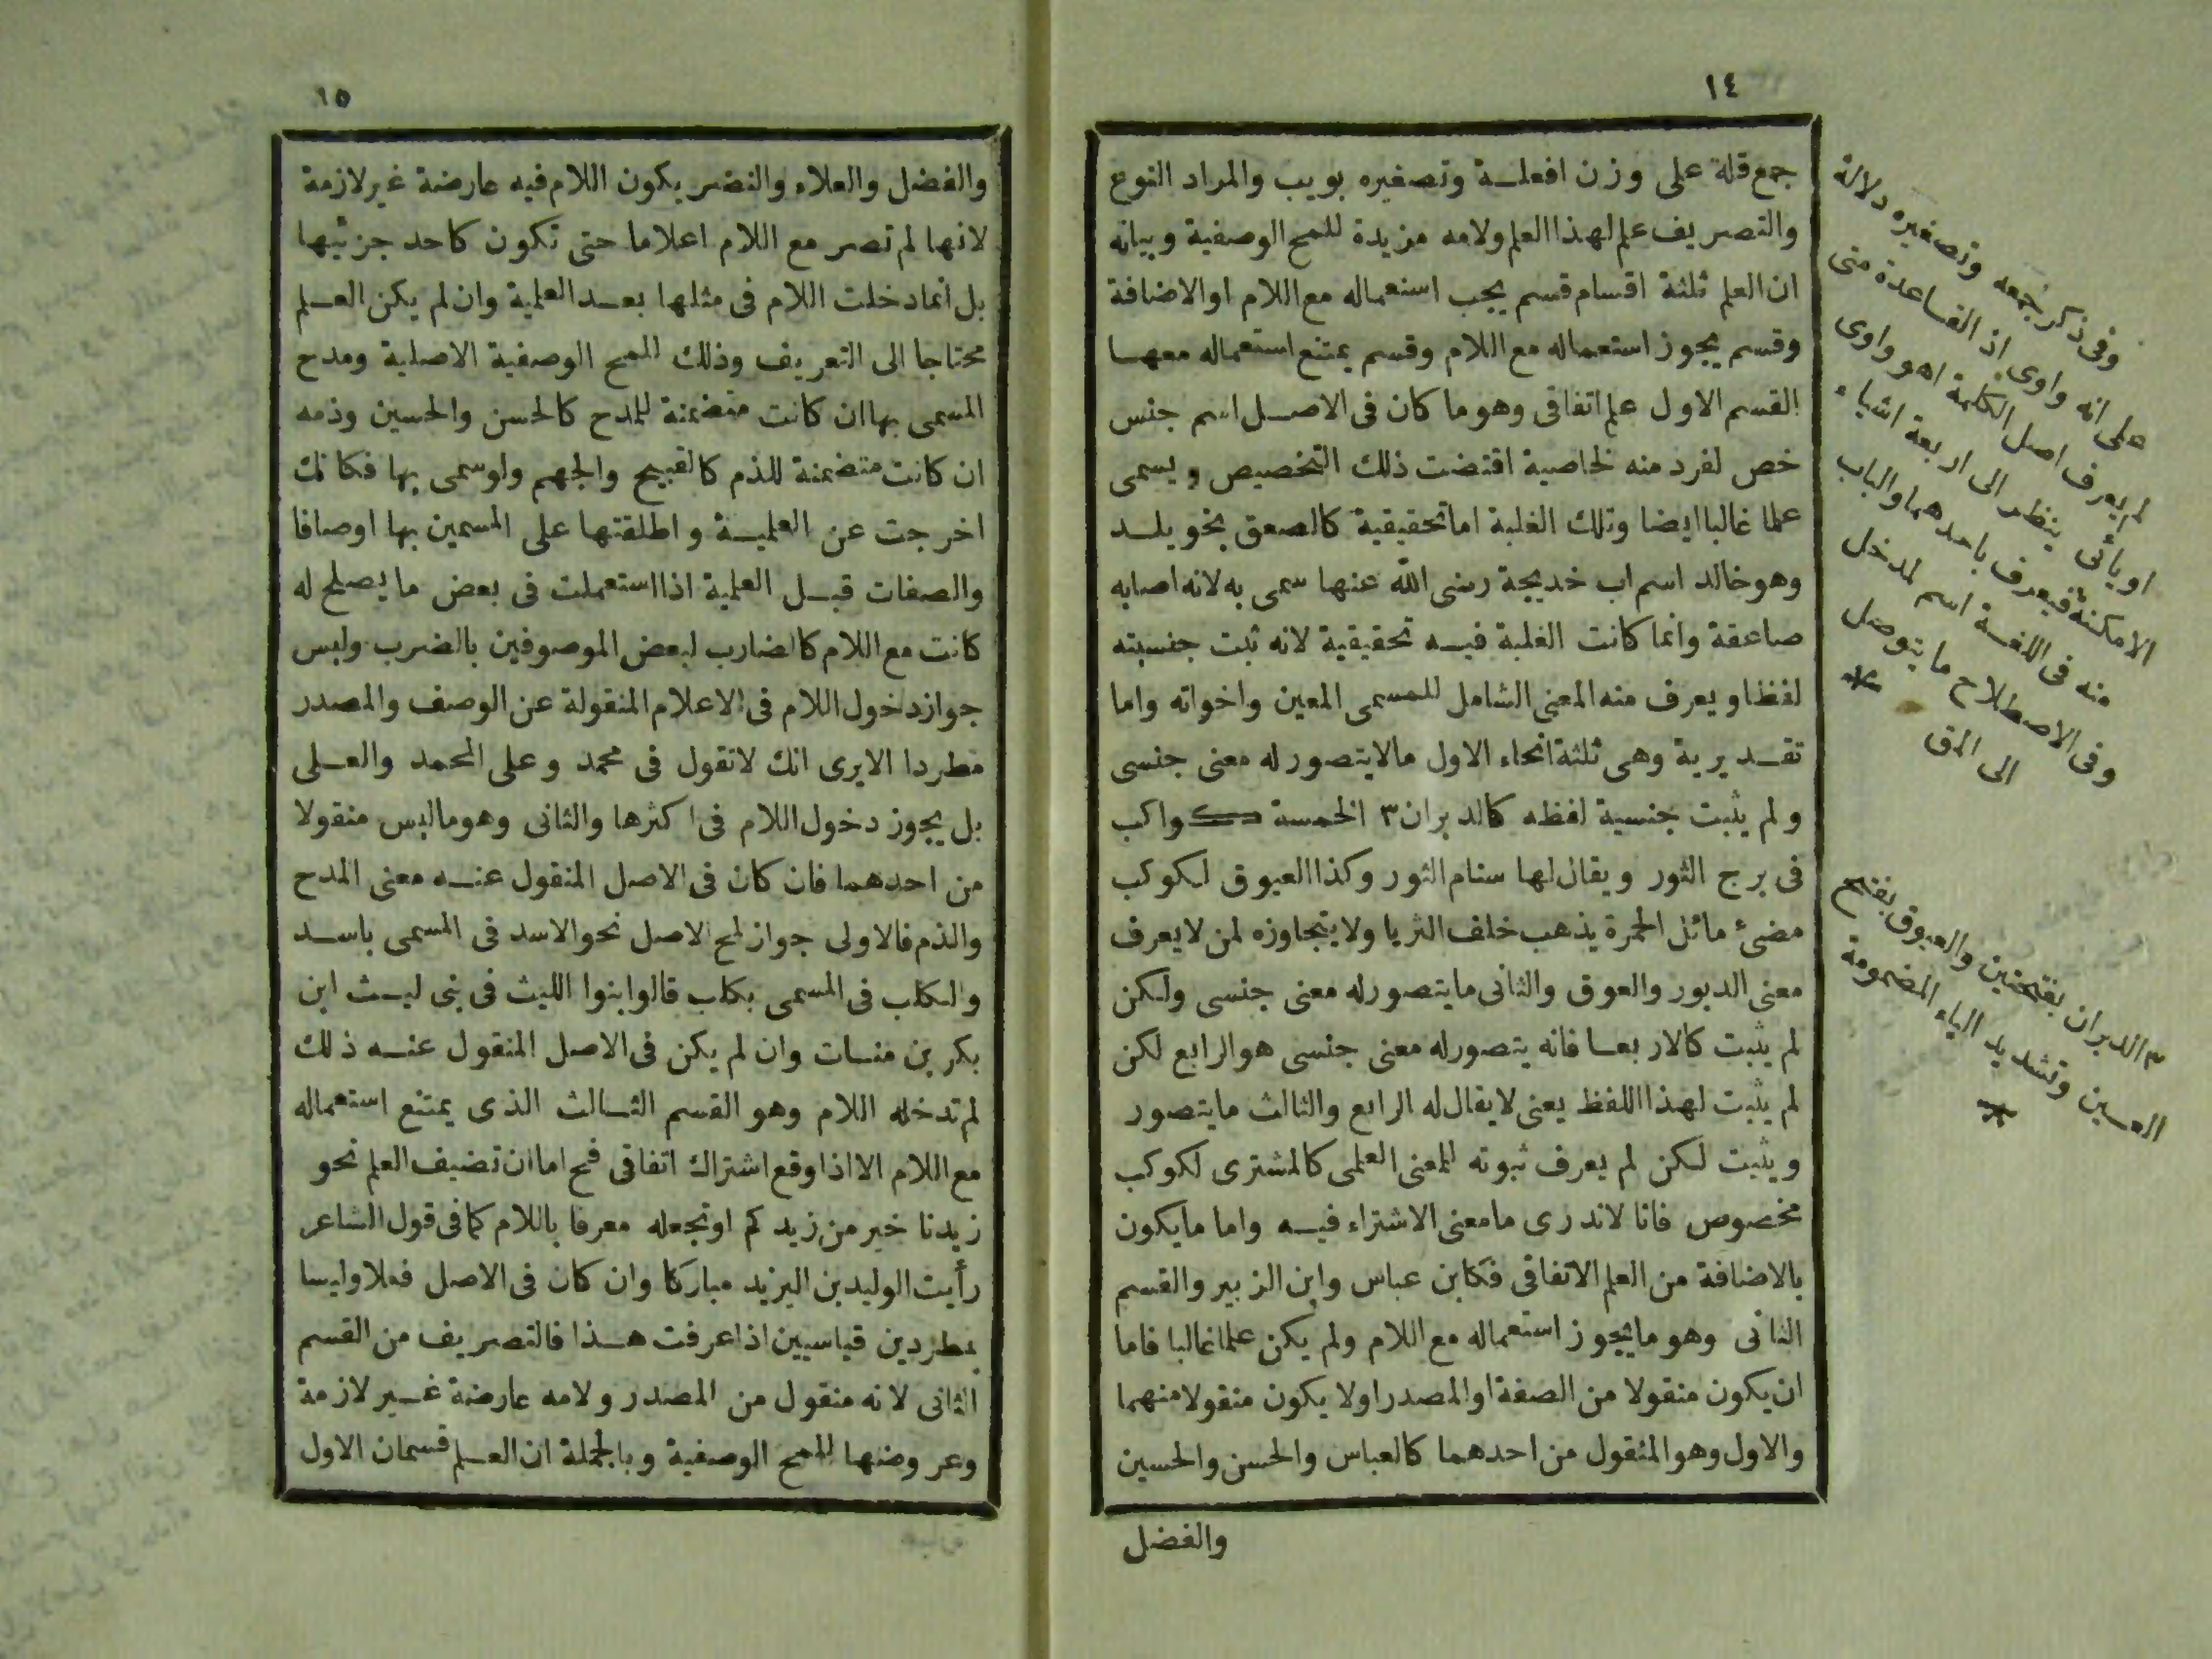 ١٤
جمع قلة على وزن افعلة وتصغيره بويب والمراد النوع
والتصريف علم لهذا العلم ولامه مزيدة للمح الوصفية وبيانه
ان العلم ثلثة اقسام قسم يجب استعماله مع اللام او الاضافة
وقسم يجوز استعماله مع اللام وقسم يمتنع استعماله معها
القسم الاول علم اتفاقى وهو ما كان فى الاصل اسم جنس
خص لفرد منه لخاصية اقتضت ذلك التخصيص ويسمى
علما غالبا ايضا وتلك الغلبة اما تحقيقية كالصعق بخويلد
وهو خالد اسم اب خديجة رضى الله عنها سمى به لانه اصابه
صاعقة وانما كانت الغلبة فيه تحقيقية لانه ثبت جنسيته
لفظا ويعرف منه المعنى الشامل للمسمى المعين واخواته واما
تقديرية وهى ثلثة انحاء الاول مالايتصور له معنى جنسى
ولم يثبت جنسية لفظه كالدبران ٣ الخمسة كواكب
فى برج الثور ويقال لها سنام الثور وكذا العيوق لكوكب
مضىء مائل الحمرة يذهب خلف الثريا ولايتجاوزه لمن لايعرف
معنى الدبور والعوق والثانى مايتصورله معنى جنسى ولكن
لم يثبت كالاربعا فانه يتصورله معنى جنسى هو الرابع لكن
لم يثبت لهذا اللفظ يعنى لايقال له الرابع والثالث مايتصور
ويثبت لكن لم يعرف ثبوته للمعنى العلمى كالمشترى لكوكب
مخصوص فانا لاندرى مامعنى الاشتراء فيه واما مايكون
بالاضافة من العلم الاتفاقى فكابن عباس وابن الزبير والقسم
الثانى وهو مايجوز استعماله مع اللام ولم يكن علما غالبا فاما
ان يكون منقولا من الصفة او المصدر اولا يكون منقولا منهما
والاول وهو المنقول من احدهما كالعباس والحسن والحسين
والفضل
وفى ذكر جمعه وتصغيره دلالة
على انه واوى اذ القاعدة متى
لم يعرف اصل الكلمة اهو واوى
او يائى ينظر الى اربعة اشياء
الامكنة فيعرف باحدهما والباب
منه فى اللغة اسم لمدخل
وفى الاصطلاح ما يتوصل
الى
٣ الدبران بفتحتين والعيوق بفتح
العين وتشديد الياء المضمومة
١٥
والفضل والعلاء والنضر يكون اللام فيه عارضة غير لازمة
لانها لم تصر مع اللام اعلاما حتى تكون كاحد جزئيها
بل انما دخلت اللام فى مثلها بعد العلمية وان لم يكن العلم
محتاجا الى التعريف وذلك للمح الوصفية الاصلية ومدح
المسمى بها ان كانت متضمنة للمدح كالحسن والحسين وذمه
ان كانت متضمنة للذم كالقبيح والجهم ولوسمى بها فكانك
اخرجت عن العلمية واطلقتها على المسمين بها اوصافا
والصفات قبل العلمية اذا استعملت فى بعض مايصلح له
كانت مع اللام كالضارب لبعض الموصوفين بالضرب وليس
جواز دخول اللام فى الاعلام المنقولة عن الوصف والمصدر
مطردا الايرى انك لاتقول فى محمد وعلى المحمد والعلى
بل يجوز دخول اللام فى اكثرها والثانى وهو ماليس منقولا
من احدهما فان كان فى الاصل المنقول عنه معنى المدح
والذم فالاولى جواز لمح الاصل نحو الاسد فى المسمى باسد
والكلب فى المسمى بكلب قالوا بنوا الليث فى بنى ليث ابن
بكر بن منات وان لم يكن فى الاصل المنقول عنه ذلك
لم تدخله اللام وهو القسم الثالث الذى يمتنع استعماله
مع اللام الا اذا وقع اشتراك اتفاقى فح اما ان تضيف العلم نحو
زيدنا خير من زيدكم او تجعله معرفا باللام كما فى قول الشاعر
رأيت الوليد بن اليزيد مباركا وان كان فى الاصل فعلا وليسا
بمطردين قياسيين اذا عرفت هذا فالتصريف من القسم
الثانى لانه منقول من المصدر ولامه عارضة غير لازمة
وعروضها للمح الوصفية وبالجملة ان العلم قسمان الاول